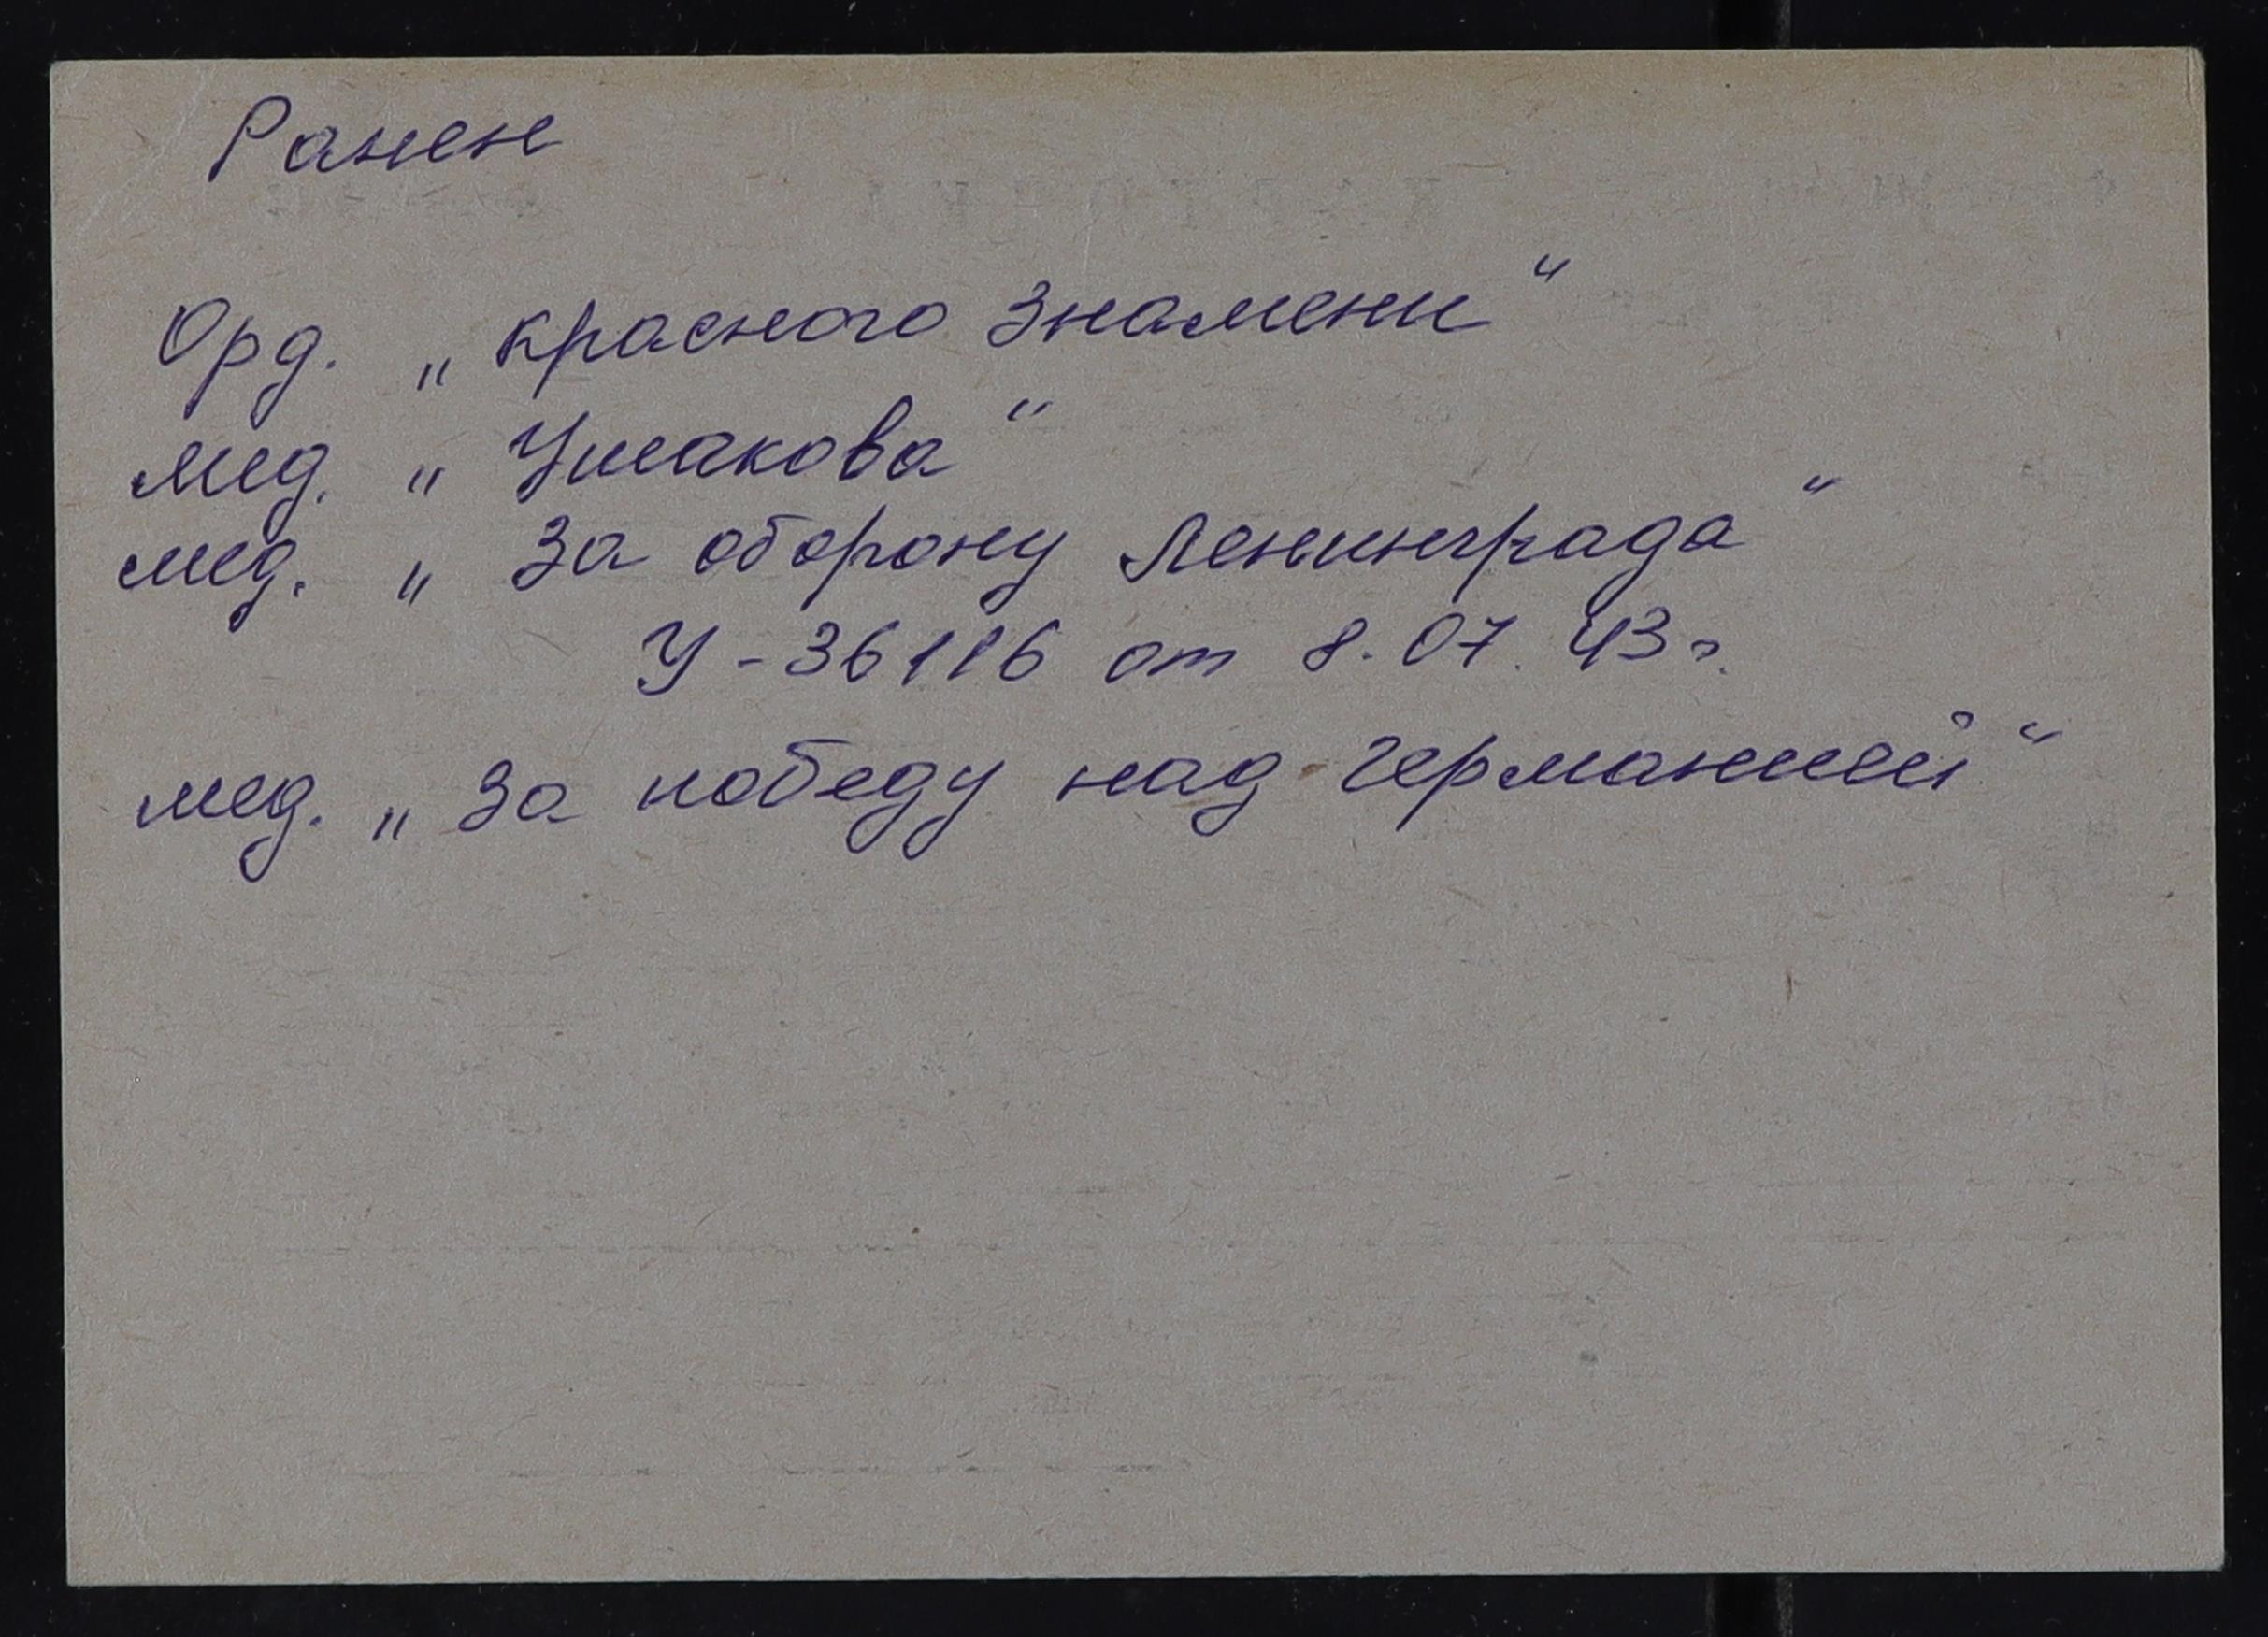 Ранен
Орд. „красного Знамени“
мед. „Ушакова“
мед. „За оборону Ленинграда“
У-36116 от 8.07.43г.
мед. „За победу над Германией“